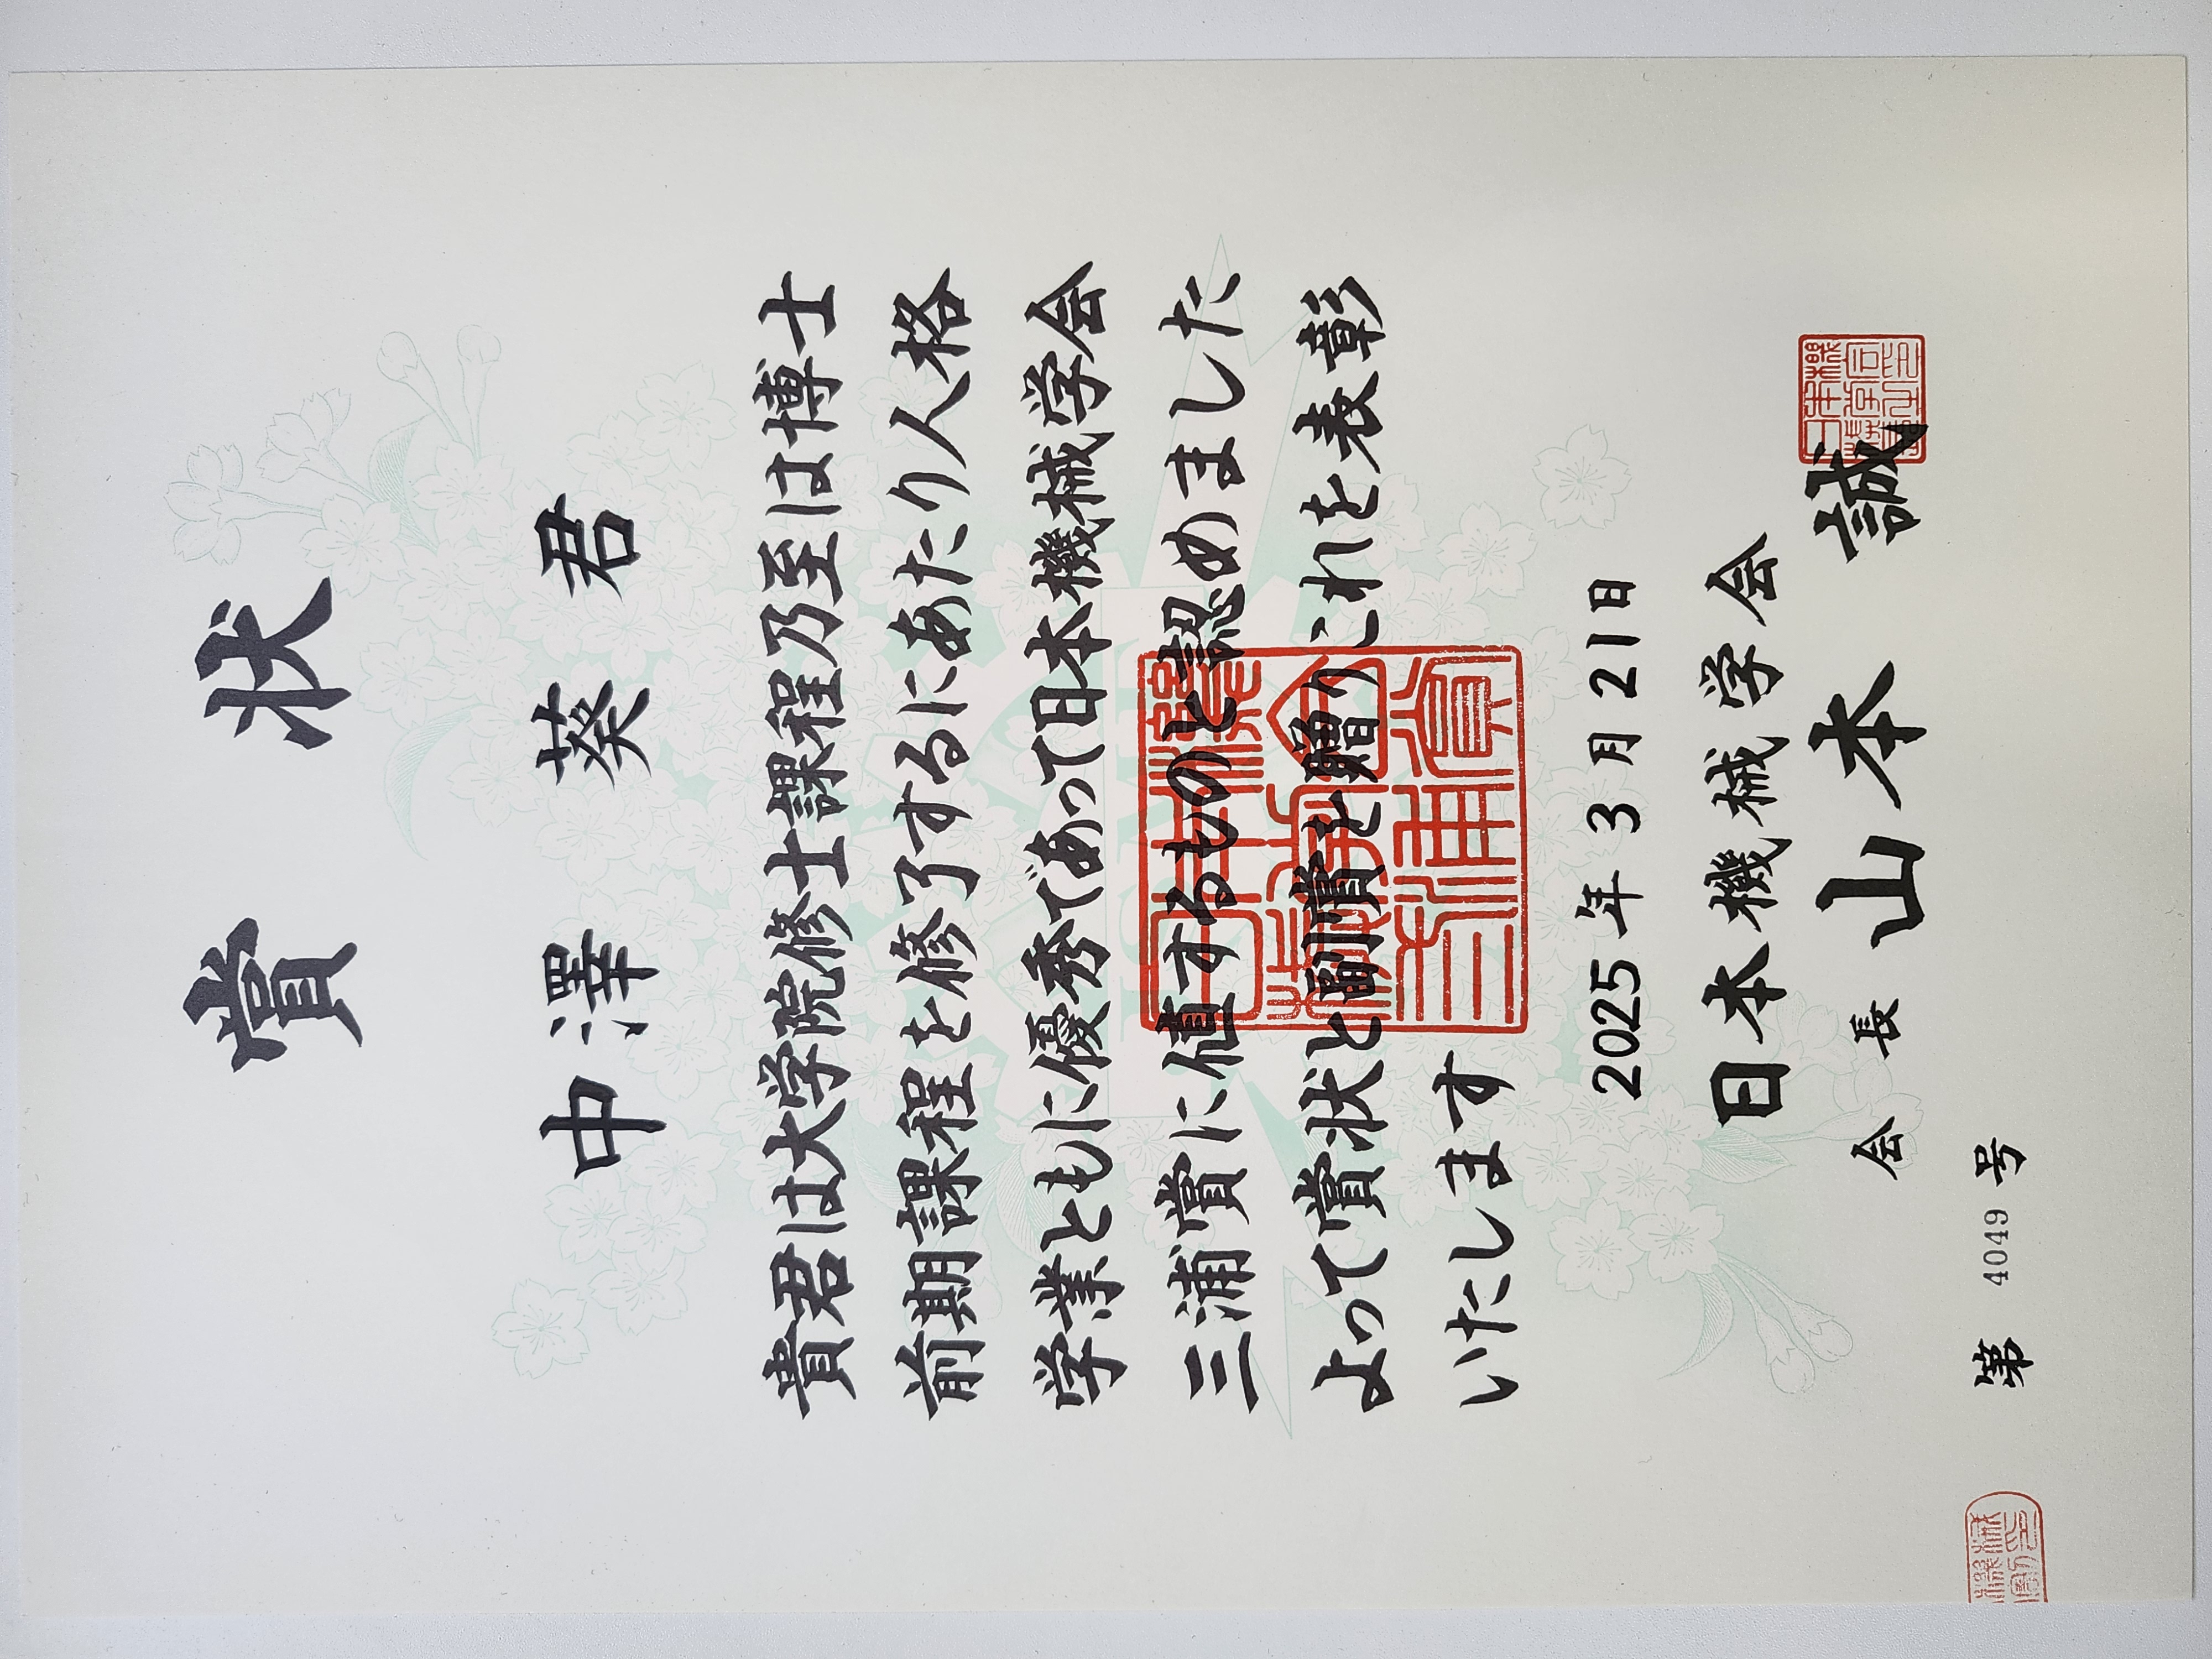 賞状
中澤 葵 君
貴君は大学院修士課程乃至は博士
前期課程を修了するにあたり人格
学業ともに優秀であって日本機械学会
三浦賞に値するものと認めました
よって賞状と副賞を贈りこれを表彰
いたします
2025年3月21日
日本機械学会
会長 山本 誠
第 4049 号